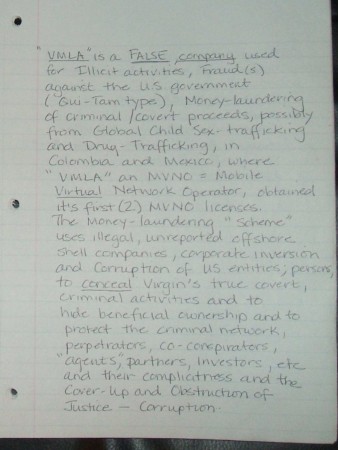 "VMLA" is a FALSE company used
for Illicit activities, Fraud(s)
against the U.S. government
("Qui-Tam type), Money-laundering
of criminal/covert proceeds, possibly
from Global Child Sex-trafficking
and Drug-Trafficking, in
Colombia and Mexico, where
"VMLA" an MVNO = Mobile
Virtual Network Operator, obtained
it's first (2) MVNO licences.
The Money-laundering "Scheme"
uses illegal, unreported offshore
shell companies, corporate inversion
and Corruption of US entities, persons,
to conceal Virgin's true covert,
criminal activities and to
hide beneficial ownership and to
protect the criminal network,
perpetrators, co-conspirators,
"agents", partners, investors, etc
and their complicitness and the
Cover-Up and Obstruction of
Justice — Corruption.